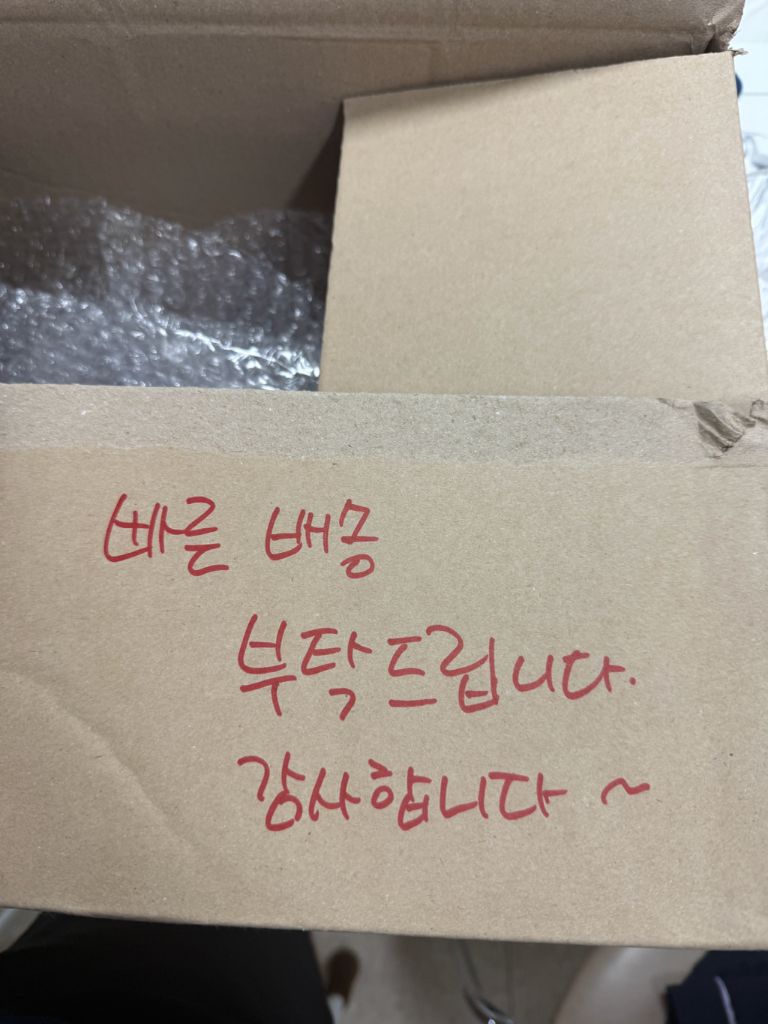 빠른 배송
부탁드립니다.
감사합니다~